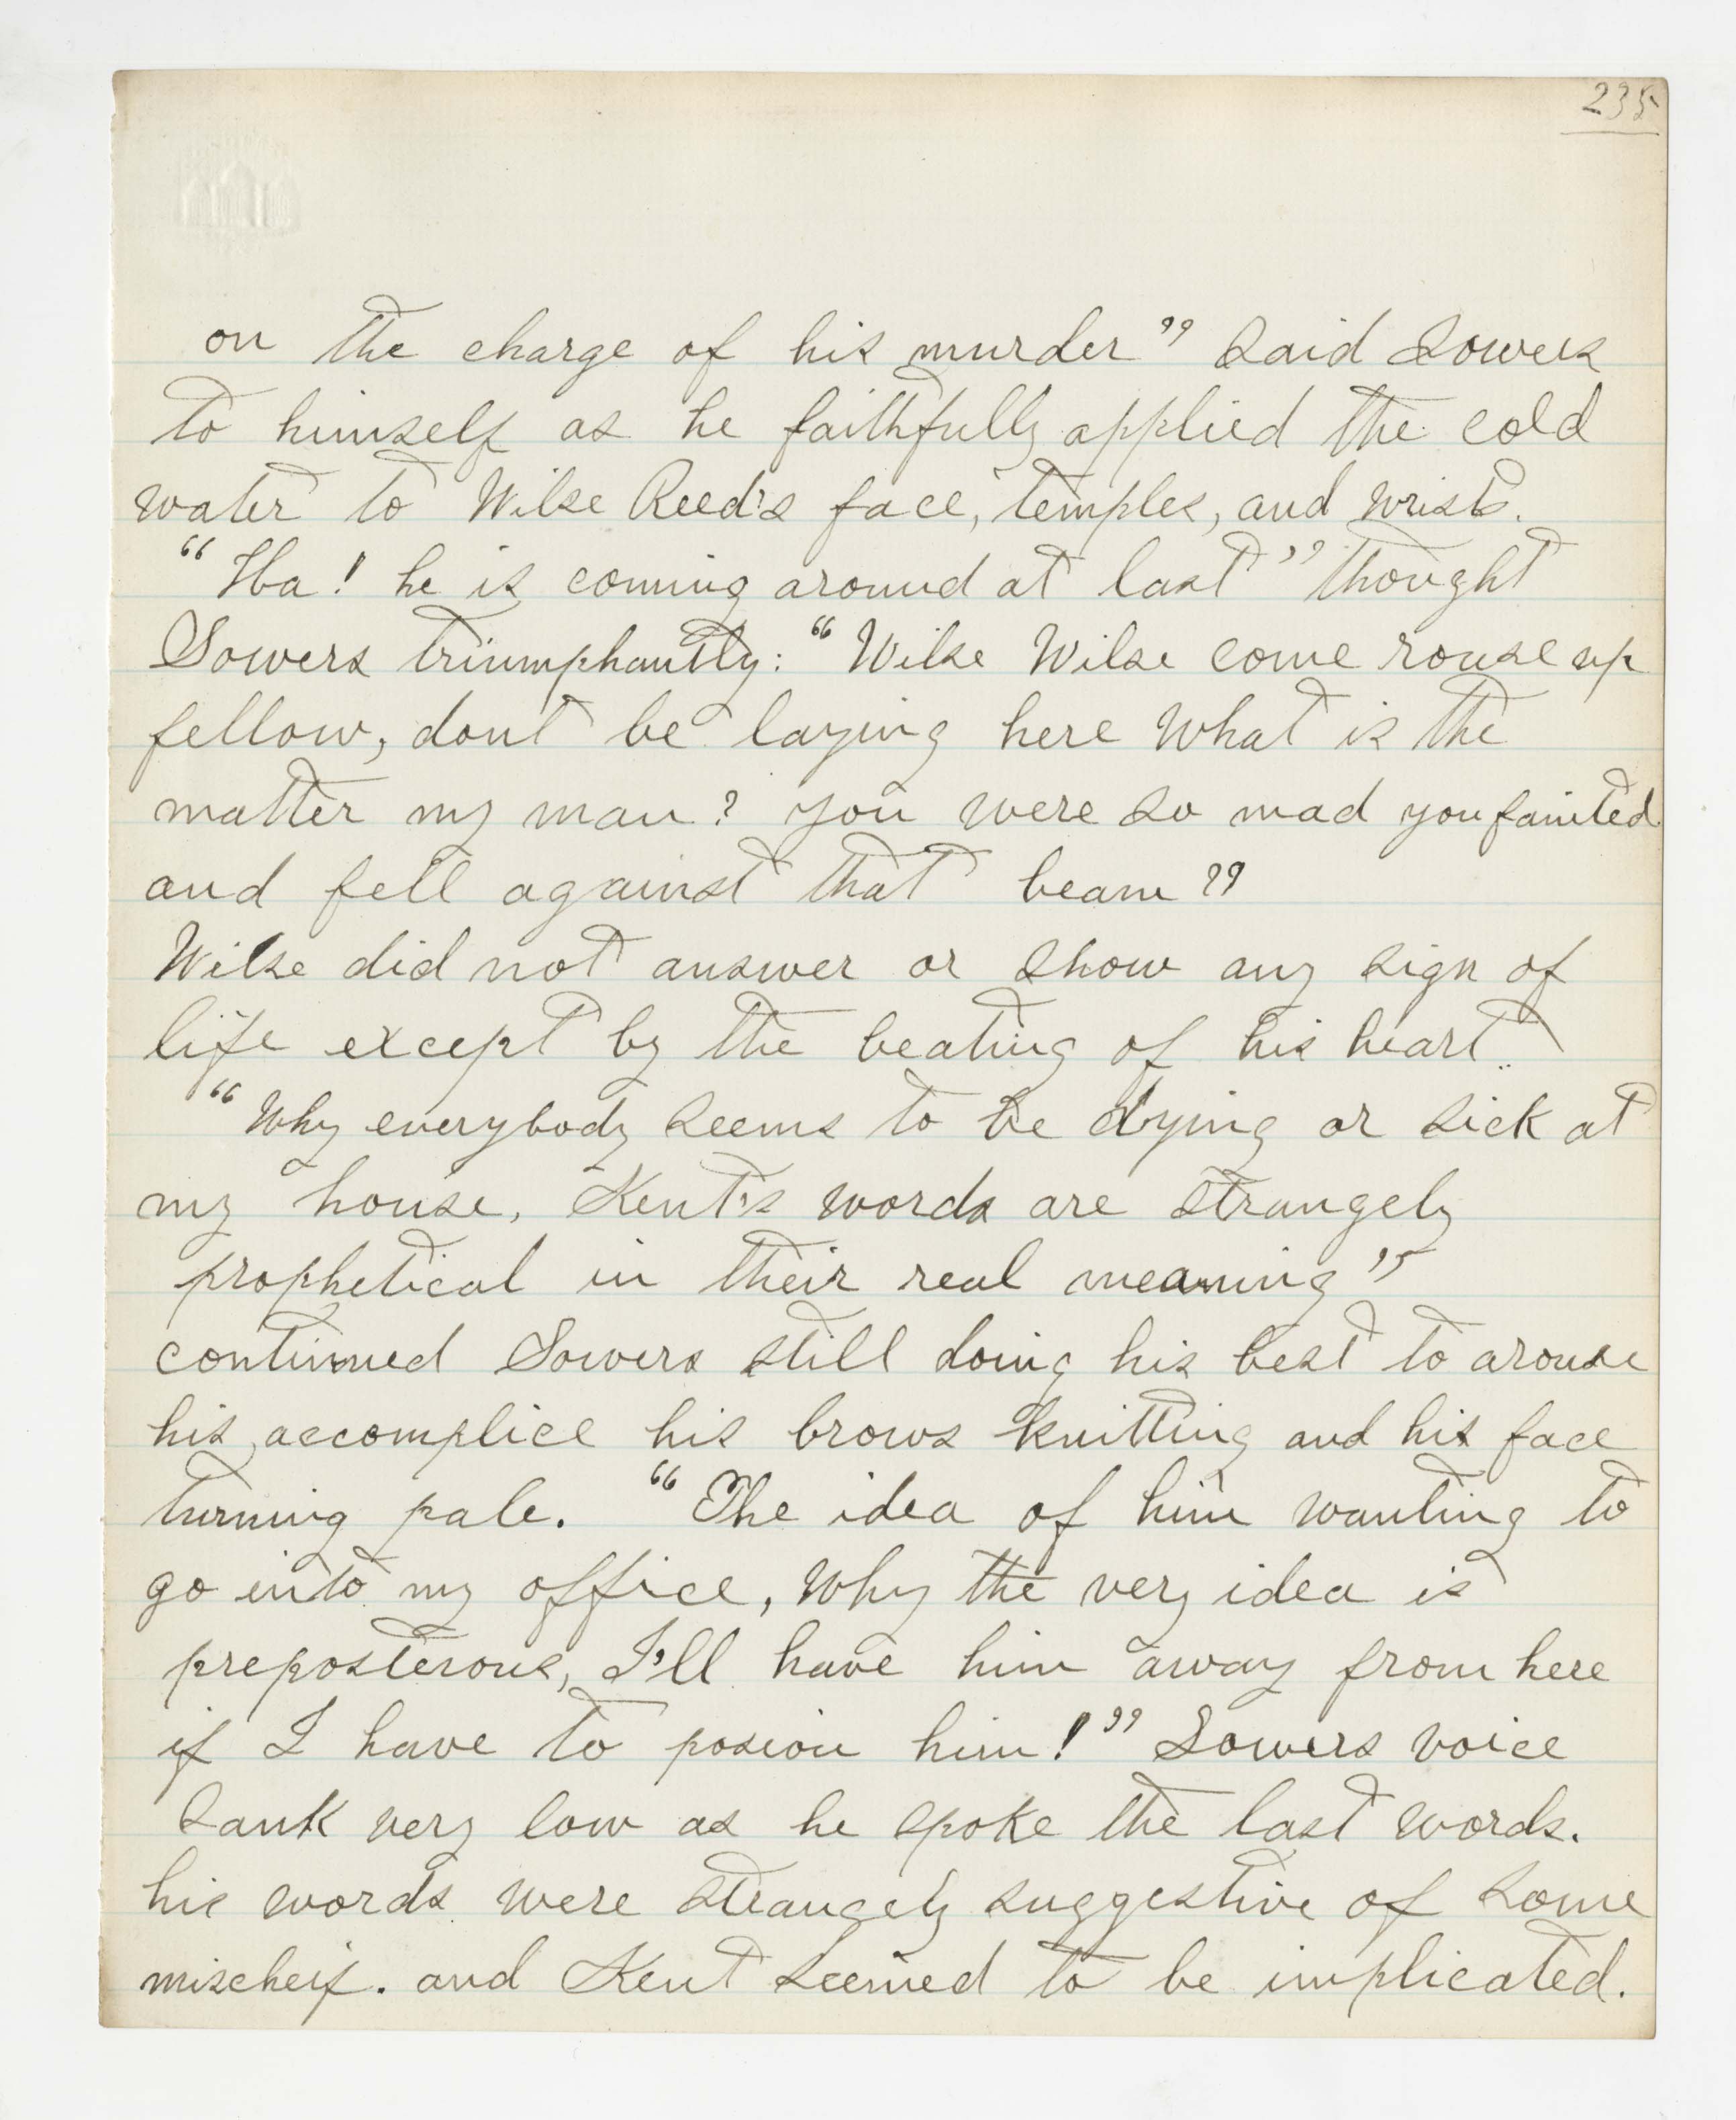 235
on the charge of his murder" said Sowers
to himself as he faithfully applied the cold
water to Wilse Reed's face, temples, and wrists.
"Ha! he is coming around at last" thought
Sowers triumphantly: "Wilse Wilse come rouse up
fellow, dont be laying here what is the
matter my man? you were so mad you fainted
and fell against that beam"
Wilse did not answer or show any sign of
life except by the beating of his heart.
"Why everybody seems to be dying or sick at
my house, Kent's words are strangely
prophetical in their real meaning"
continued Sowers still doing his best to arouse
his accomplice his brows knitting and his face
turning pale. "The idea of him wanting to
go into my office, why the very idea is
preposterous, I'll have him away from here
if I have to posion him!" Sowers voice
sank very low as he spoke the last words.
his words were strangely suggestive of some
mischeif. and Kent seemed to be implicated.